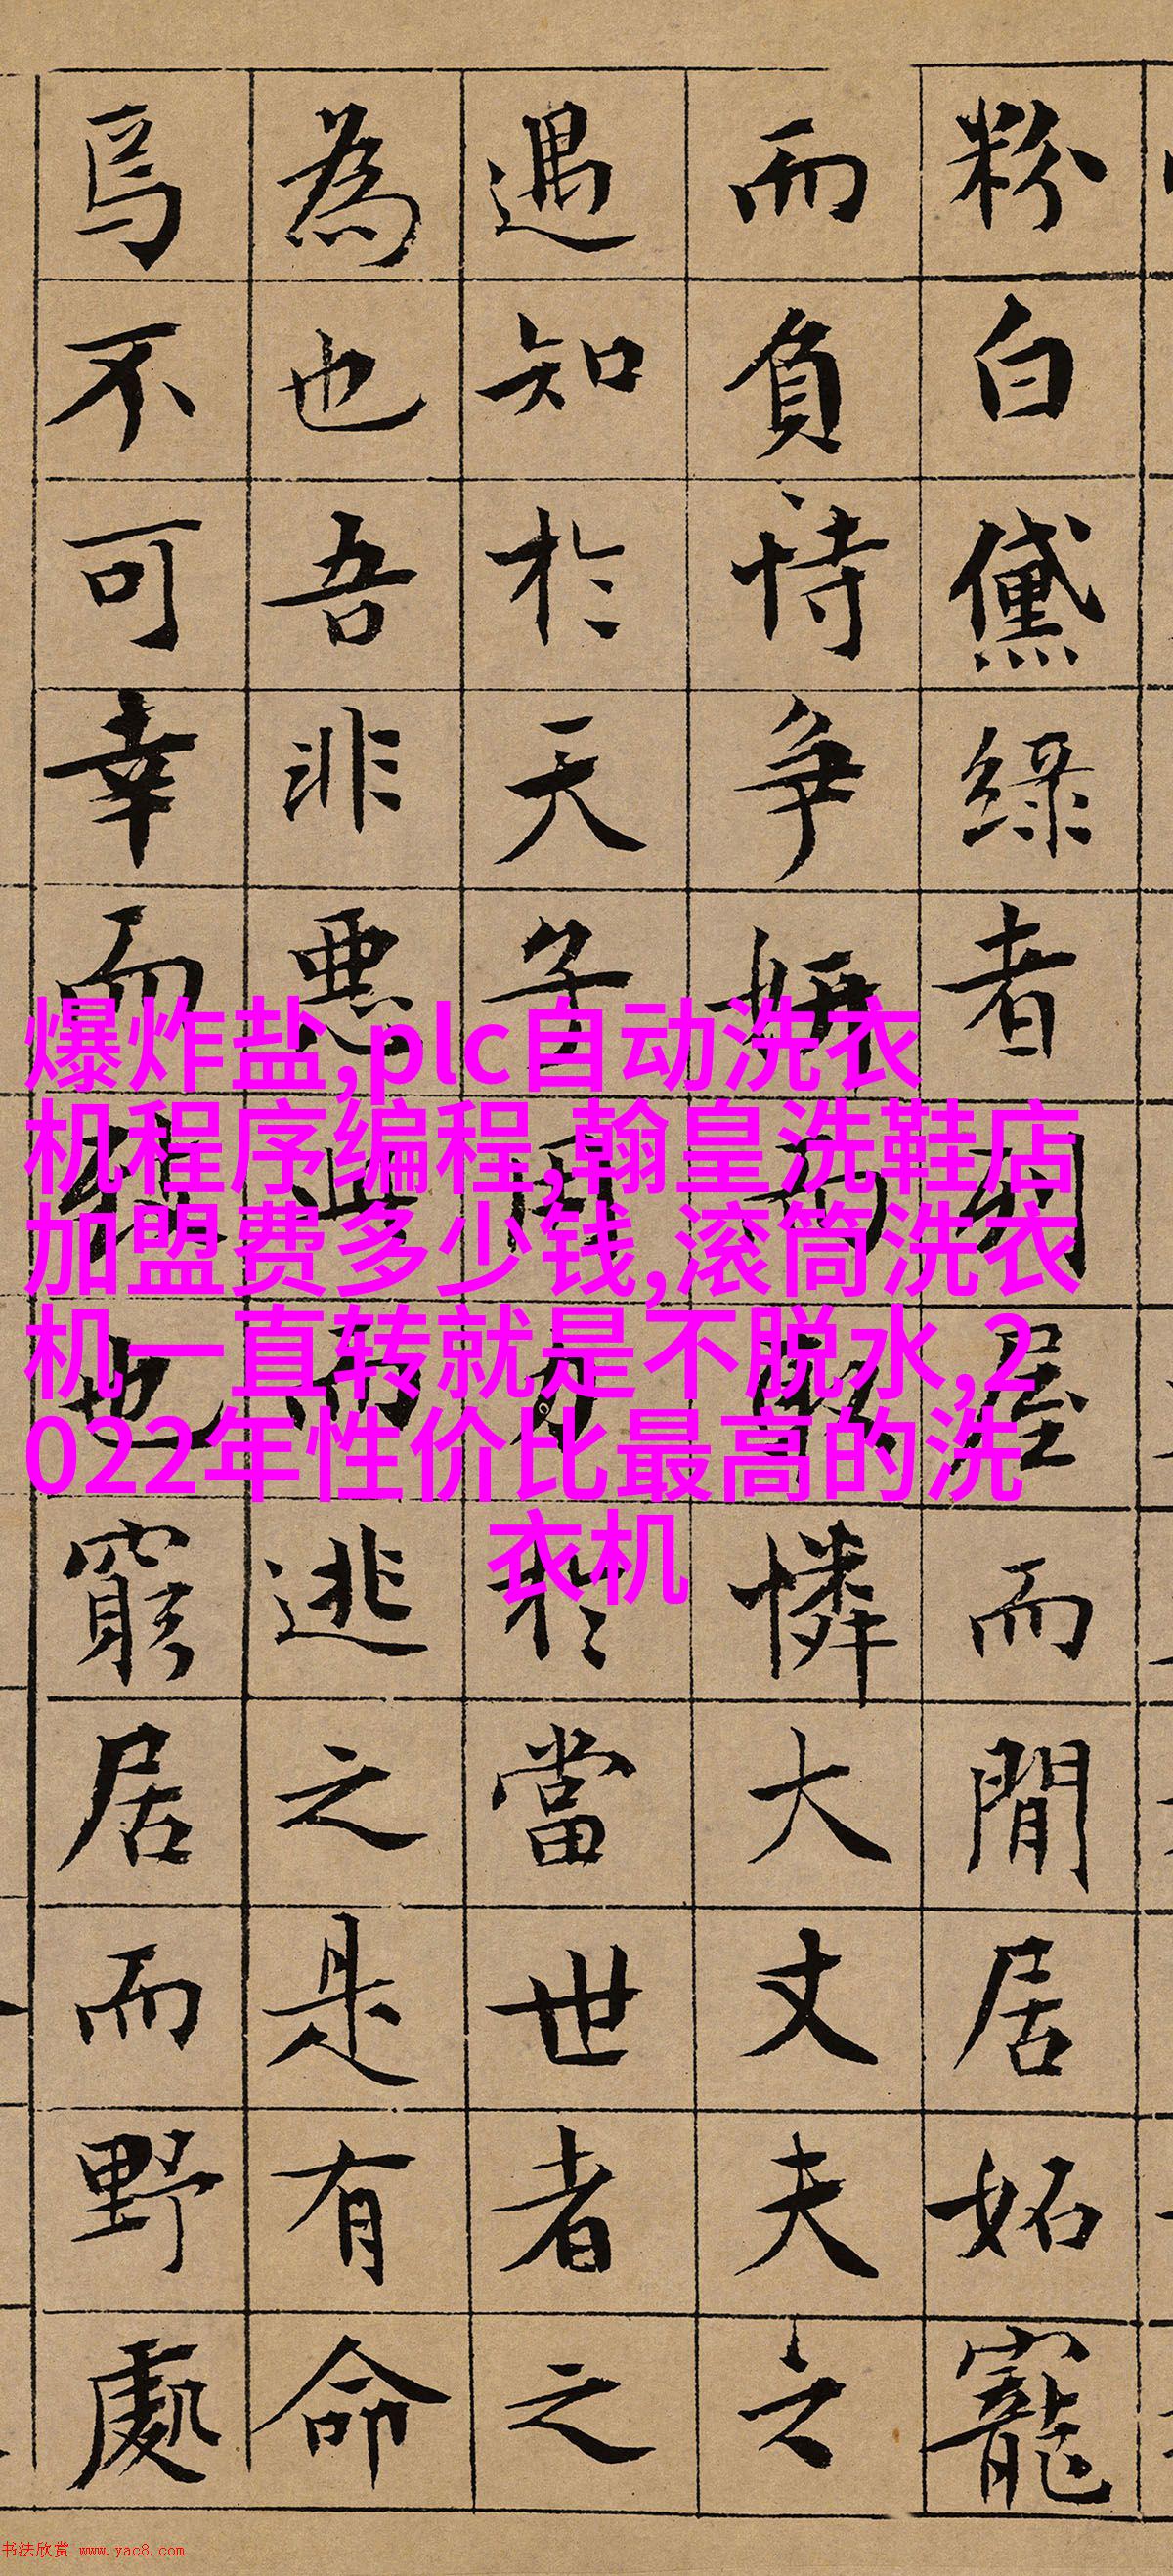 粉白黛綠者列屋而閒居妬寵
而負恃争妍而取憐大丈夫之
遇知於天子用力於當世者之
為也吾非惡此而逃之是有命
焉不可幸而致也窮居而野處
爆炸盐,plc自动洗衣
机程序编程,翰皇洗鞋店
加盟费多少钱,滚筒洗衣
机一直转就是不脱水,2
022年性价比最高的洗
衣机
书法欣赏 www.yac8.com